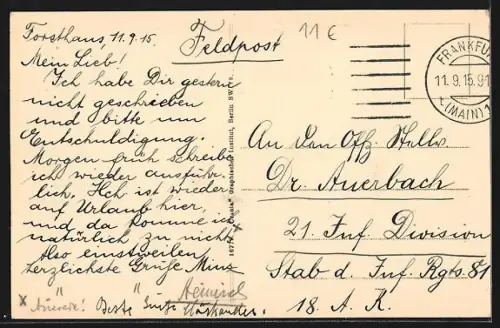 Forsthaus, 11.9.15.
Mein Lieb!
Ich habe Dir gestern
nicht geschrieben
und bitte um
Entschuldigung.
Morgen früh schreibe
ich wieder ausführ-
lich. Hch ist wieder
auf Urlaub hier,
und da komme ich
natürlich zu nichts
Also einstweilen
herzlichste Grüße Mina
Beste Grüße
Heinrich
Feldpost
11 €
FRANKFURT
11.9.15.9-1
(MAIN) 1
Graphisches Institut, Berlin SW
An den Offz. Stellv.
Dr. Auerbach
21. Inf. Division
Stab d. Inf. Rgts. 81
18. A. K.